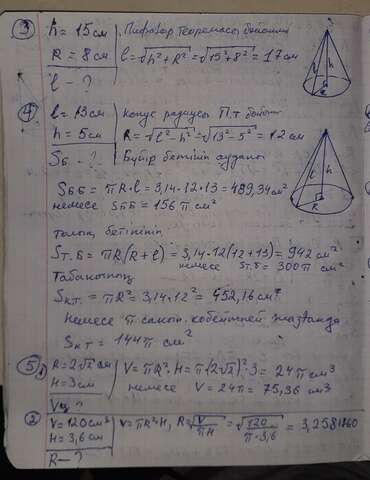 ③ h = 15см | Пифагор теоремасы бойынша
R = 8см | l = √h² + R² = √15² + 8² = 17см
l - ?
④ l = 13см | конус радиусы П.т бойын
h = 5см | R = √l² - h² = √13² - 5² = 12см
Sб.б - ? | Бүйір бетінің ауданы
Sб.б = πR·l = 3,14·12·13 = 489,34см²
немесе Sб.б = 156π см²
толық бетінінің
Sт.б = πR(R + l) = 3,14·12(12+13) = 942 см²
немесе Sт.б = 300π см²
Табанының
Sк.т. = πR² = 3,14·12² = 452,16см²
немесе π санын көбейтпей жазғанда
Sкт = 144π см²
⑤ 1) R = 2√2 см | V = πR²·H = π(2√2)²·3 = 24π см³
H = 3см | немесе V = 24π = 75,36 см3
Vц ?
② V = 120см³ | V = πR²H, R = √V/πH = √120/π·3,6 = 3,2581860
H = 3,6см
R - ?